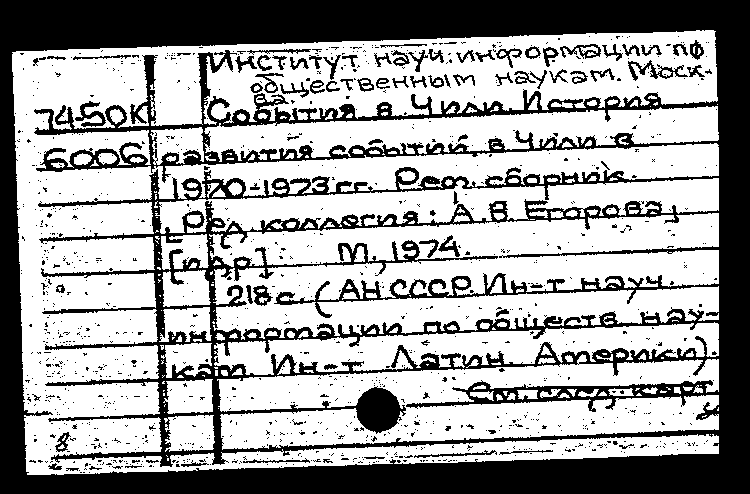 Институт науч. информации по
общественным наукам. Моск-
ва.
74-50К События в Чили. История
6006 развития событий в Чили в
1970-1973 гг. Реф. сборник.
[Ред. коллегия: А.В. Егорова,
[и др]. М., 1974.
218 с. (АН СССР. Ин-т науч.
информации по обществ. нау-
кам. Ин-т Латин. Америки).
См. след. карт
8